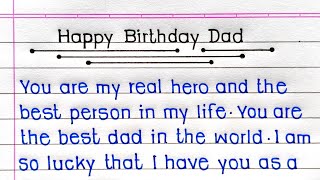 Happy Birthday Dad
You are my real hero and the
best person in my life. You are
the best dad in the world. I am
so lucky that I have you as a